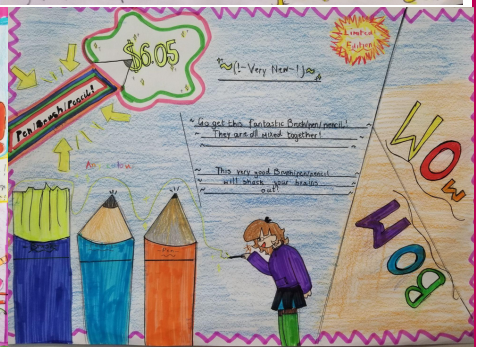 $6.05
Limited
Edition
(!~Very New~!)
Pen/Brush/Pencil!
Go get this fantastic Brush/pen/pencil!
They are all mixed together!
This very good Brush/pen/pencil
will shock your brains
out!
WOW
WOW